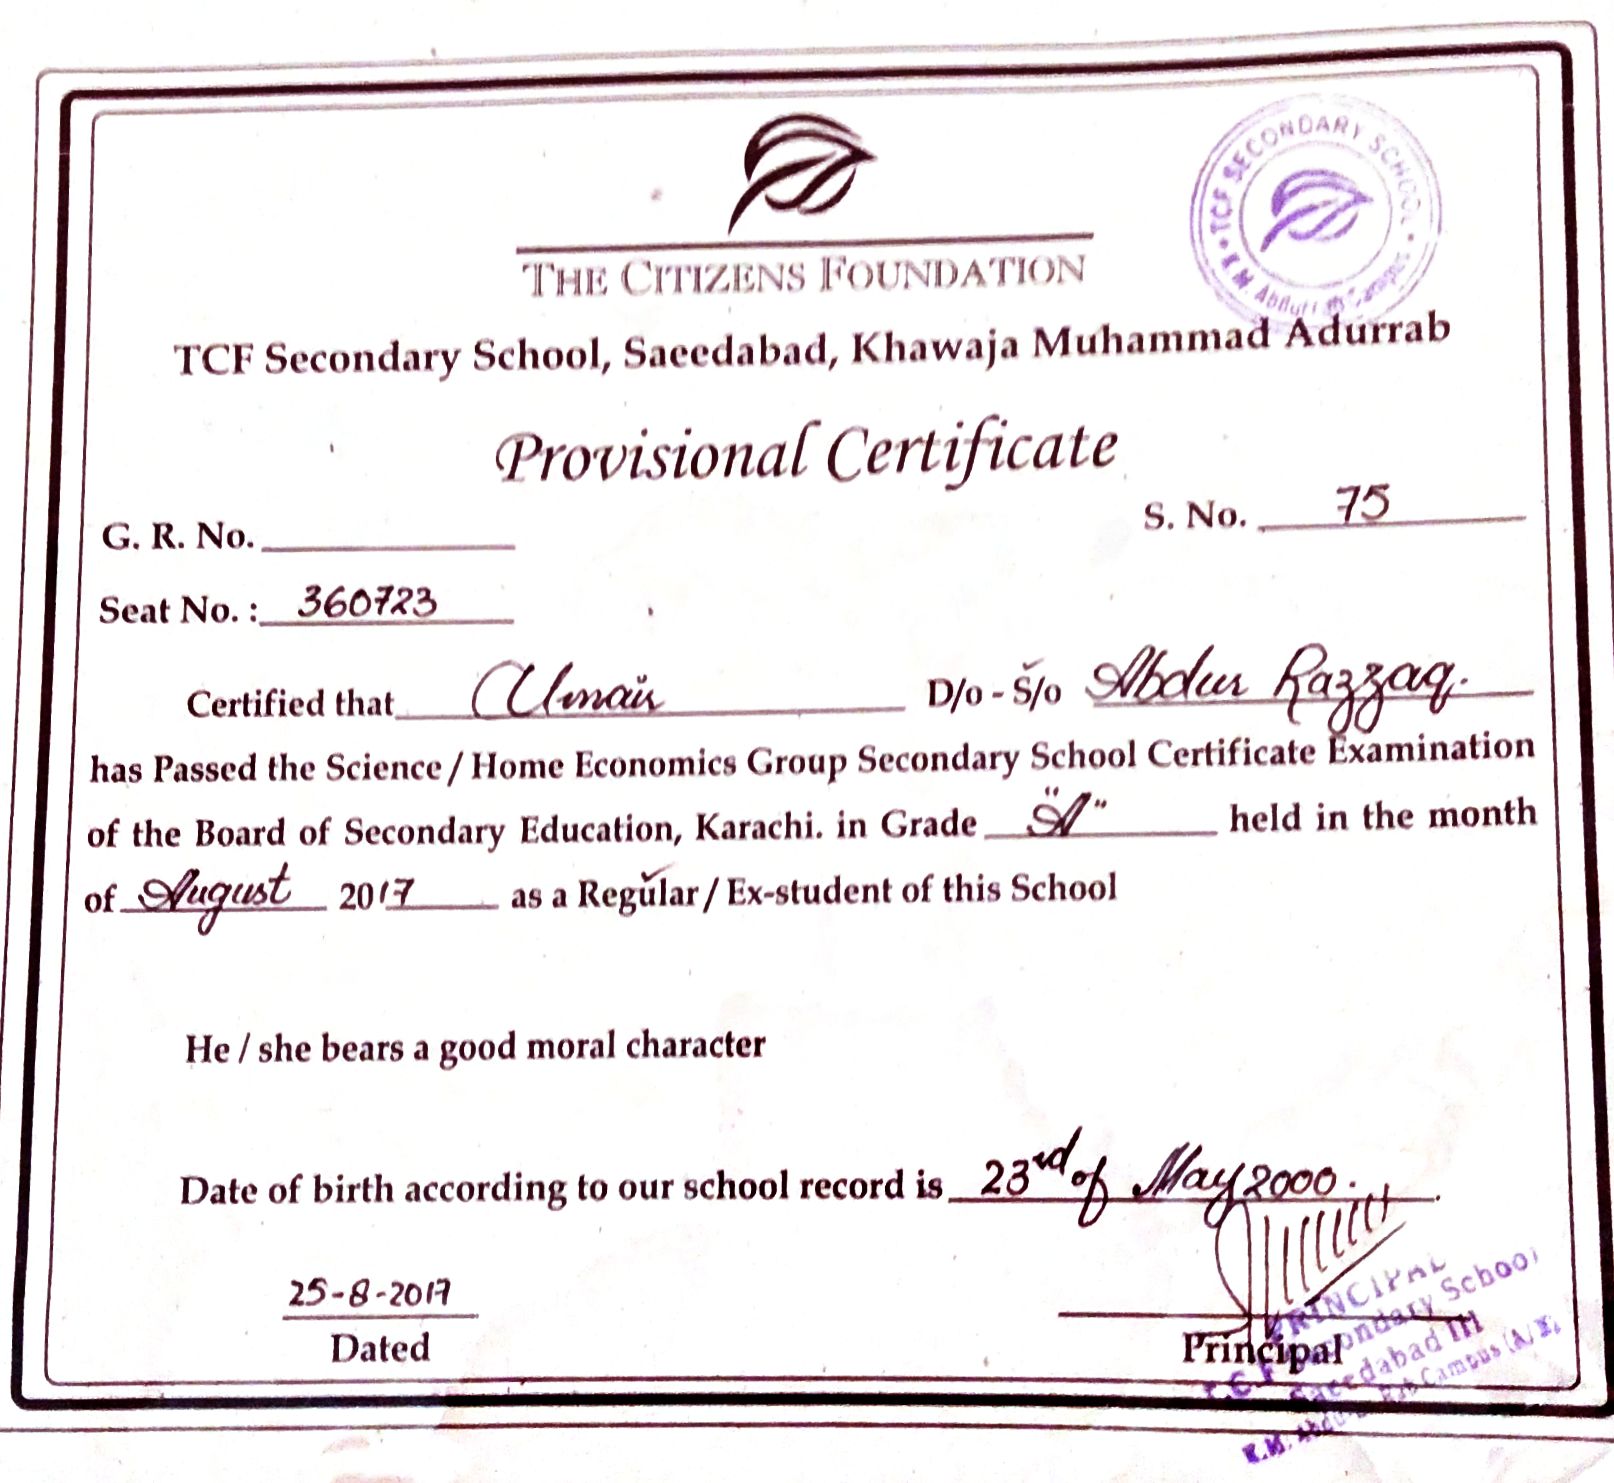 TCF SECONDARY SCHOOL
THE CITIZENS FOUNDATION
TCF Secondary School, Saeedabad, Khawaja Muhammad Adurrab
Provisional Certificate
G. R. No.
S. No. 75
Seat No. : 360723
Certified that Umair D/o - S/o Abdur Razzaq.
has Passed the Science / Home Economics Group Secondary School Certificate Examination
of the Board of Secondary Education, Karachi. in Grade "A" held in the month
of August 2017 as a Regular / Ex-student of this School
He / she bears a good moral character
Date of birth according to our school record is 23rd of May 2000.
25-8-2017
Dated
Principal
PRINCIPAL
Secondary School
Saeedabad III
Campus